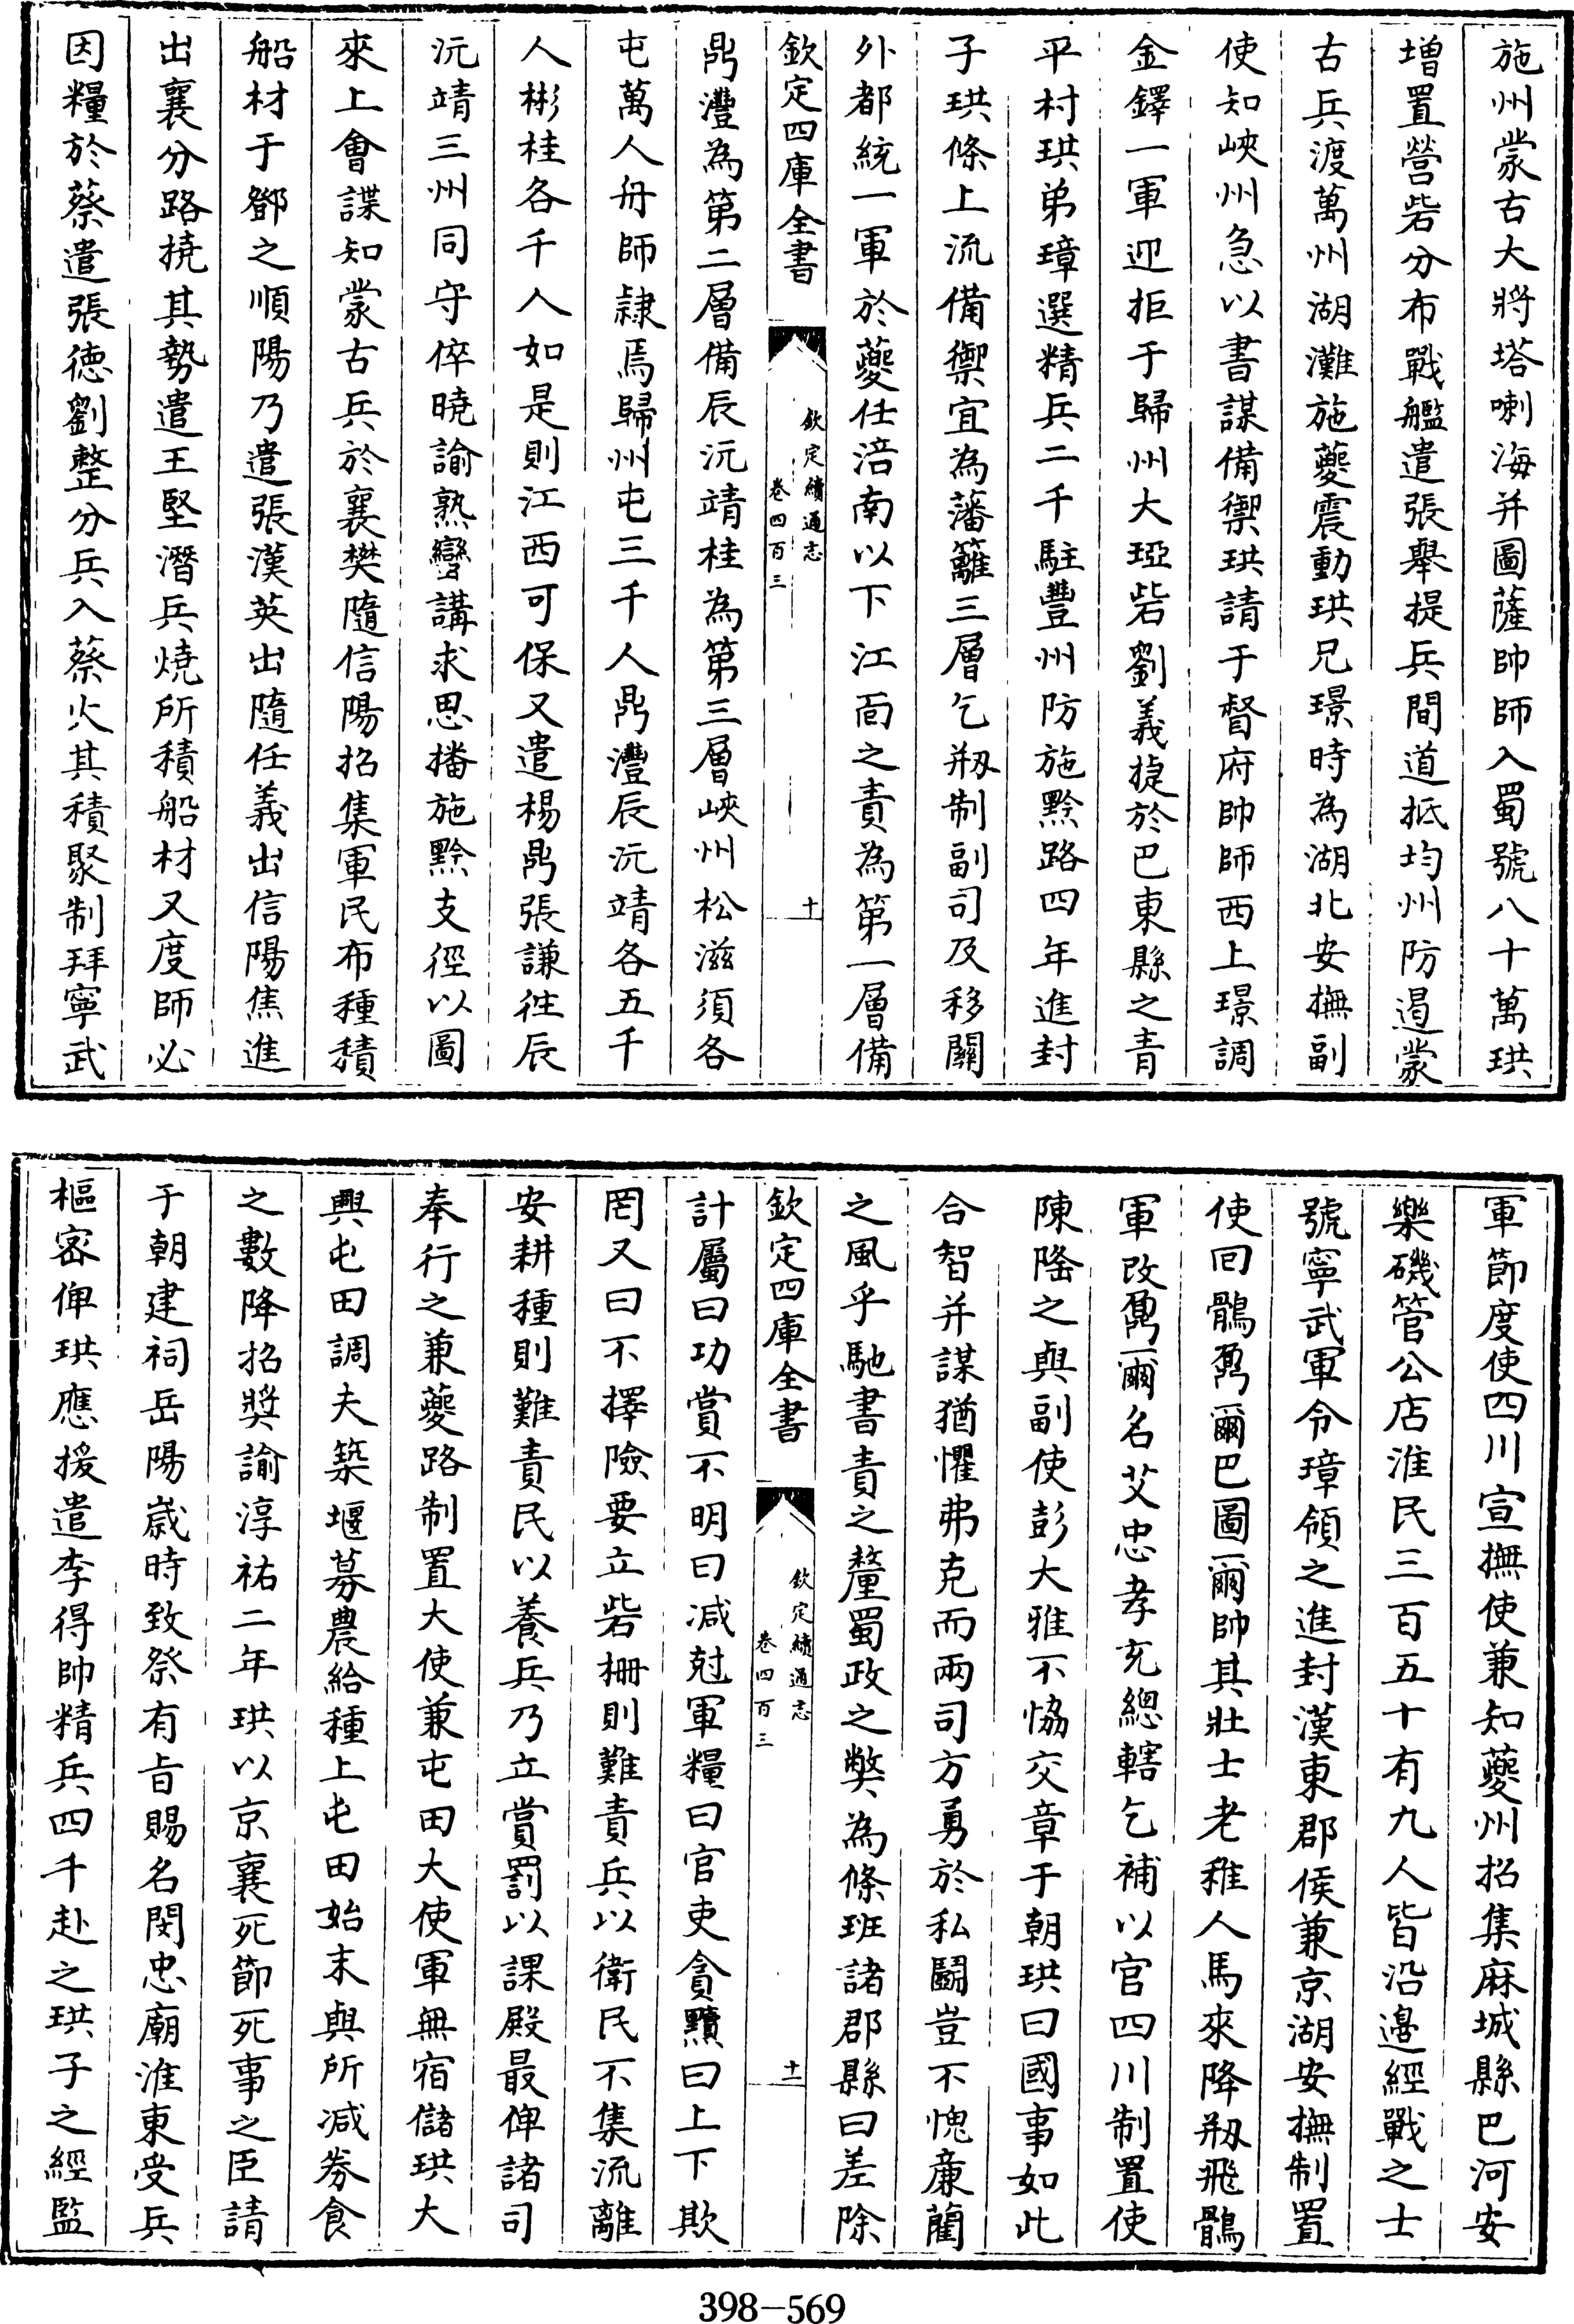 施州蒙古大將塔喇海并圖薩帥師入蜀號八十萬珙
增置營砦分布戰艦遣張舉提兵間道抵均州防遏蒙
古兵渡萬州湖灘施夔震動珙兄璟時為湖北安撫副
使知峽州急以書謀備禦珙請于督府帥師西上璟調
金鐸一軍迎拒于歸州大埡砦劉義捷於巴東縣之青
平村珙弟璋選精兵二千駐豐州防施黔路四年進封
子珙條上流備禦宜為藩籬三層乞剏制副司及移關
外都統一軍於夔任涪南以下江面之責為第一層備
鼎灃為第二層備辰沅靖桂為第三層峽州松滋須各
屯萬人舟師隸焉歸州屯三千人鼎灃辰沅靖各五千
人彬桂各千人如是則江西可保又遣楊鼎張謙往辰
沅靖三州同守倅曉諭熟蠻講求思播施黔支徑以圖
來上會諜知蒙古兵於襄樊隨信陽招集軍民布種積
船材于鄧之順陽乃遣張漢英出隨任義出信陽焦進
出襄分路撓其勢遣王堅潛兵燒所積船材又度師必
因糧於蔡遣張德劉整分兵入蔡火其積聚制拜寧武
欽定四庫全書
欽定續通志
卷四百三
十
軍節度使四川宣撫使兼知夔州招集麻城縣巴河安
樂磯管公店淮民三百五十有九人皆沿邊經戰之士
號寧武軍令璋領之進封漢東郡侯兼京湖安撫制置
使回鶻鼐爾巴圖爾帥其壯士老稚人馬來降剏飛鶻
軍改鼐爾名艾忠孝充總轄乞補以官四川制置使
陳隆之與副使彭大雅不恊交章于朝珙曰國事如此
合智并謀猶懼弗克而兩司方勇於私鬭豈不愧廉藺
之風乎馳書責之釐蜀政之獘為條班諸郡縣曰差除
計屬曰功賞不明曰減尅軍糧曰官吏貪黷曰上下欺
罔又曰不擇險要立砦柵則難責兵以衛民不集流離
安耕種則難責民以養兵乃立賞罰以課殿最俾諸司
奉行之兼夔路制置大使兼屯田大使軍無宿儲珙大
興屯田調夫築堰募農給種上屯田始末與所減券食
之數降招獎諭淳祐二年珙以京襄死節死事之臣請
于朝建祠岳陽歲時致祭有旨賜名閔忠廟淮東受兵
樞密俾珙應援遣李得帥精兵四千赴之珙子之經監
欽定四庫全書
欽定續通志
卷四百三
十一
398-569